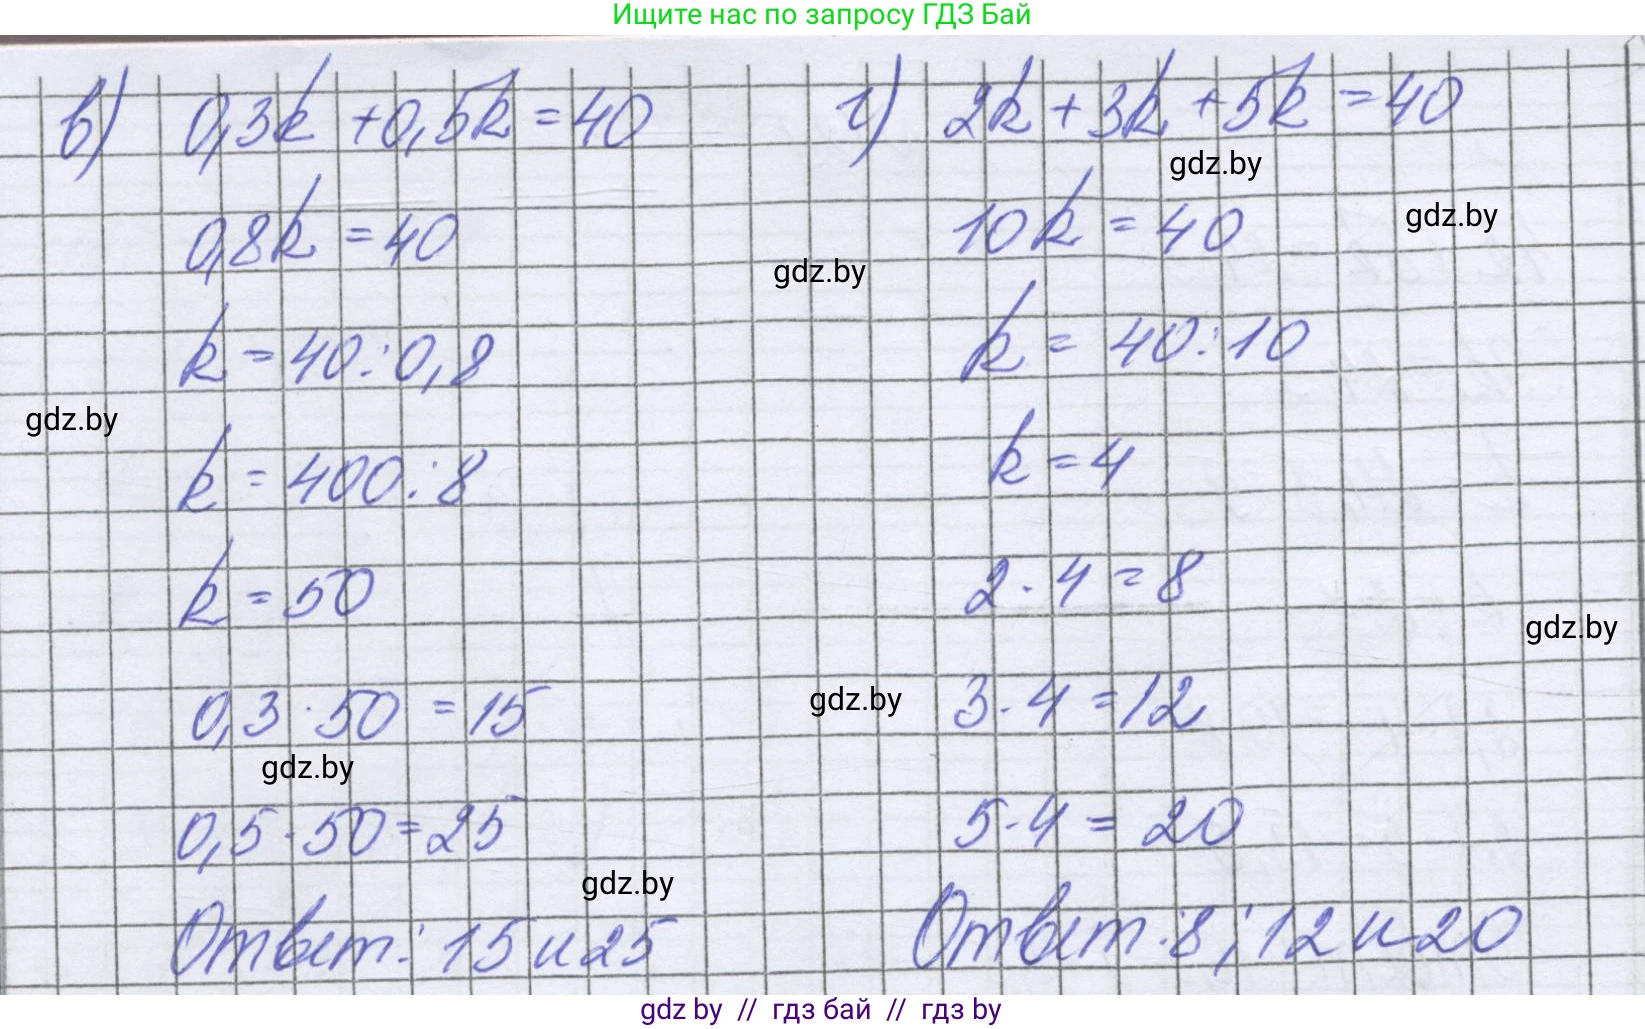 Ищите нас по запросу ГДЗ Бай
в) 0,3k + 0,5k = 40
0,8k = 40
k = 40 : 0,8
k = 400 : 8
k = 50
0,3 · 50 = 15
0,5 · 50 = 25
Ответ: 15 и 25
г) 2k + 3k + 5k = 40
10k = 40
k = 40 : 10
k = 4
2 · 4 = 8
3 · 4 = 12
5 · 4 = 20
Ответ: 8; 12 и 20
gdz.by
gdz.by
gdz.by
gdz.by
gdz.by
gdz.by
gdz.by
gdz.by
gdz by // гдз бай // гдз by